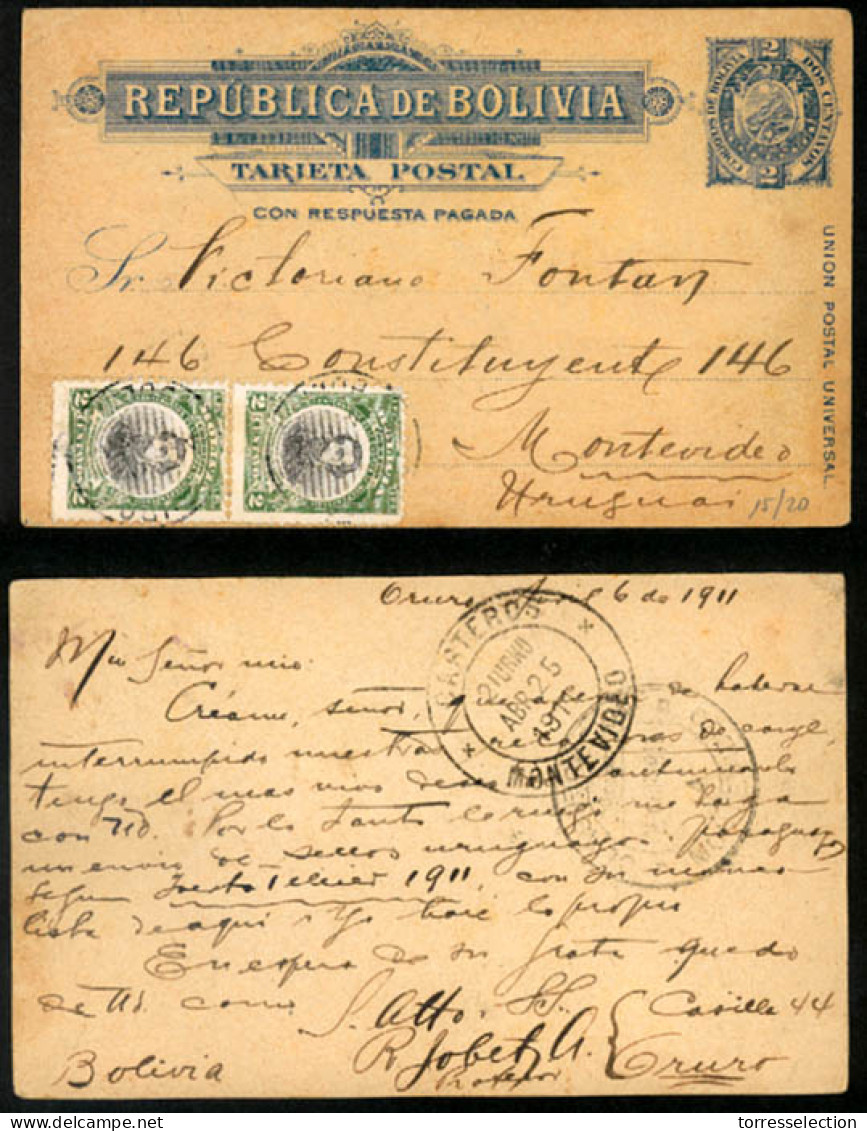 REPÚBLICA DE BOLIVIA
TARJETA POSTAL
CON RESPUESTA PAGADA
2 2
CORREO DE BOLIVIA
DOS CENTAVOS
2 2
UNION POSTAL UNIVERSAL.
Sr. Victoriano Fontan
146 Constituyente 146
Montevideo
Uruguai
15/20
2 2
2 2
Oruro, Abril 6 de 1911
Mui Señor mio:
Créame, señor, que de haberse
interrumpido nuestras de canje
tengo el mas vivo deseo continuarla
con Ud. Por lo tanto le ruego me haga
un envio de sellos uruguayos,
segun 1911, con su manco
lista de aqui i Yo haré lo propio
En espera de su grata quedo
de Ud. como S. Atto. SS.
R. Jobet A.
Profesor
Casilla 44
Oruro
Bolivia
CARTEROS
2 TURNO
ABR 25
1911
MONTEVIDEO
torresselection